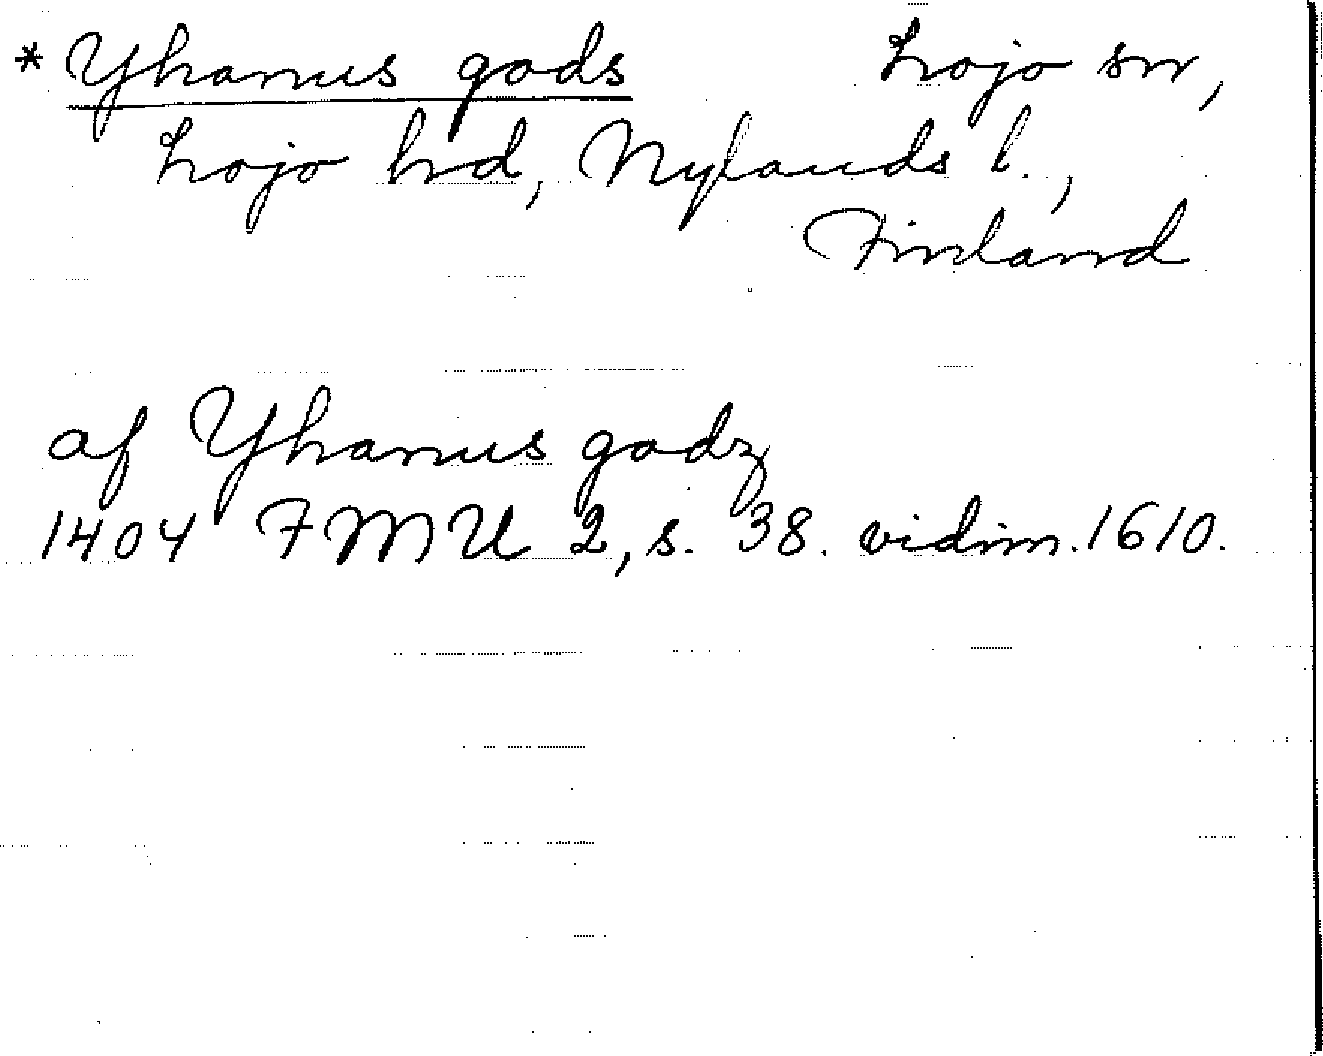 * Yhanus gods Lojo sn,
Lojo hd, Nylands l.,
Finland
af Yhanus godz
1404 FMU 2, s. 38. vidim. 1610.